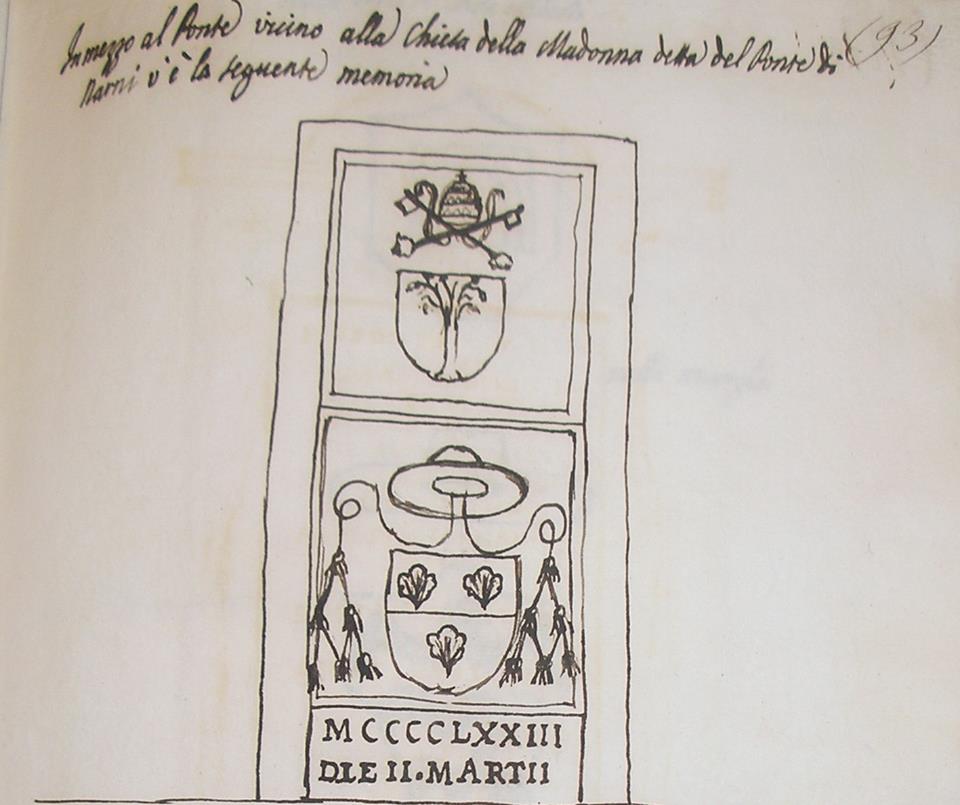 In mezzo al Ponte vicino alla Chiesa della Madonna detta del Ponte di (93)
Narni v'è la seguente memoria
MCCCCCLXXIII
DIE II. MARTII